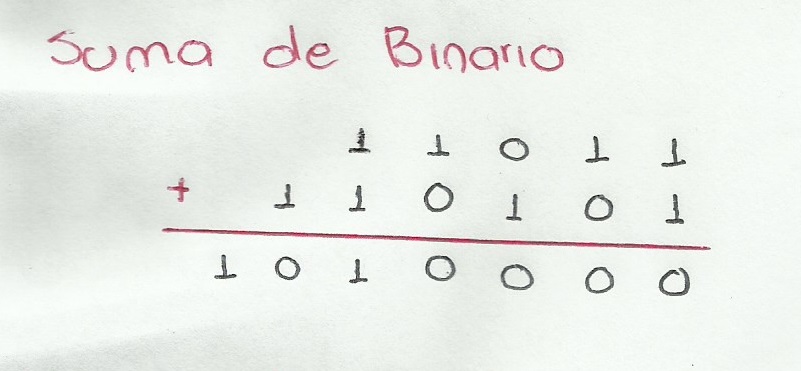 Suma de Binario
1 1 0 1 1
+ 1 1 0 1 0 1
1 0 1 0 0 0 0